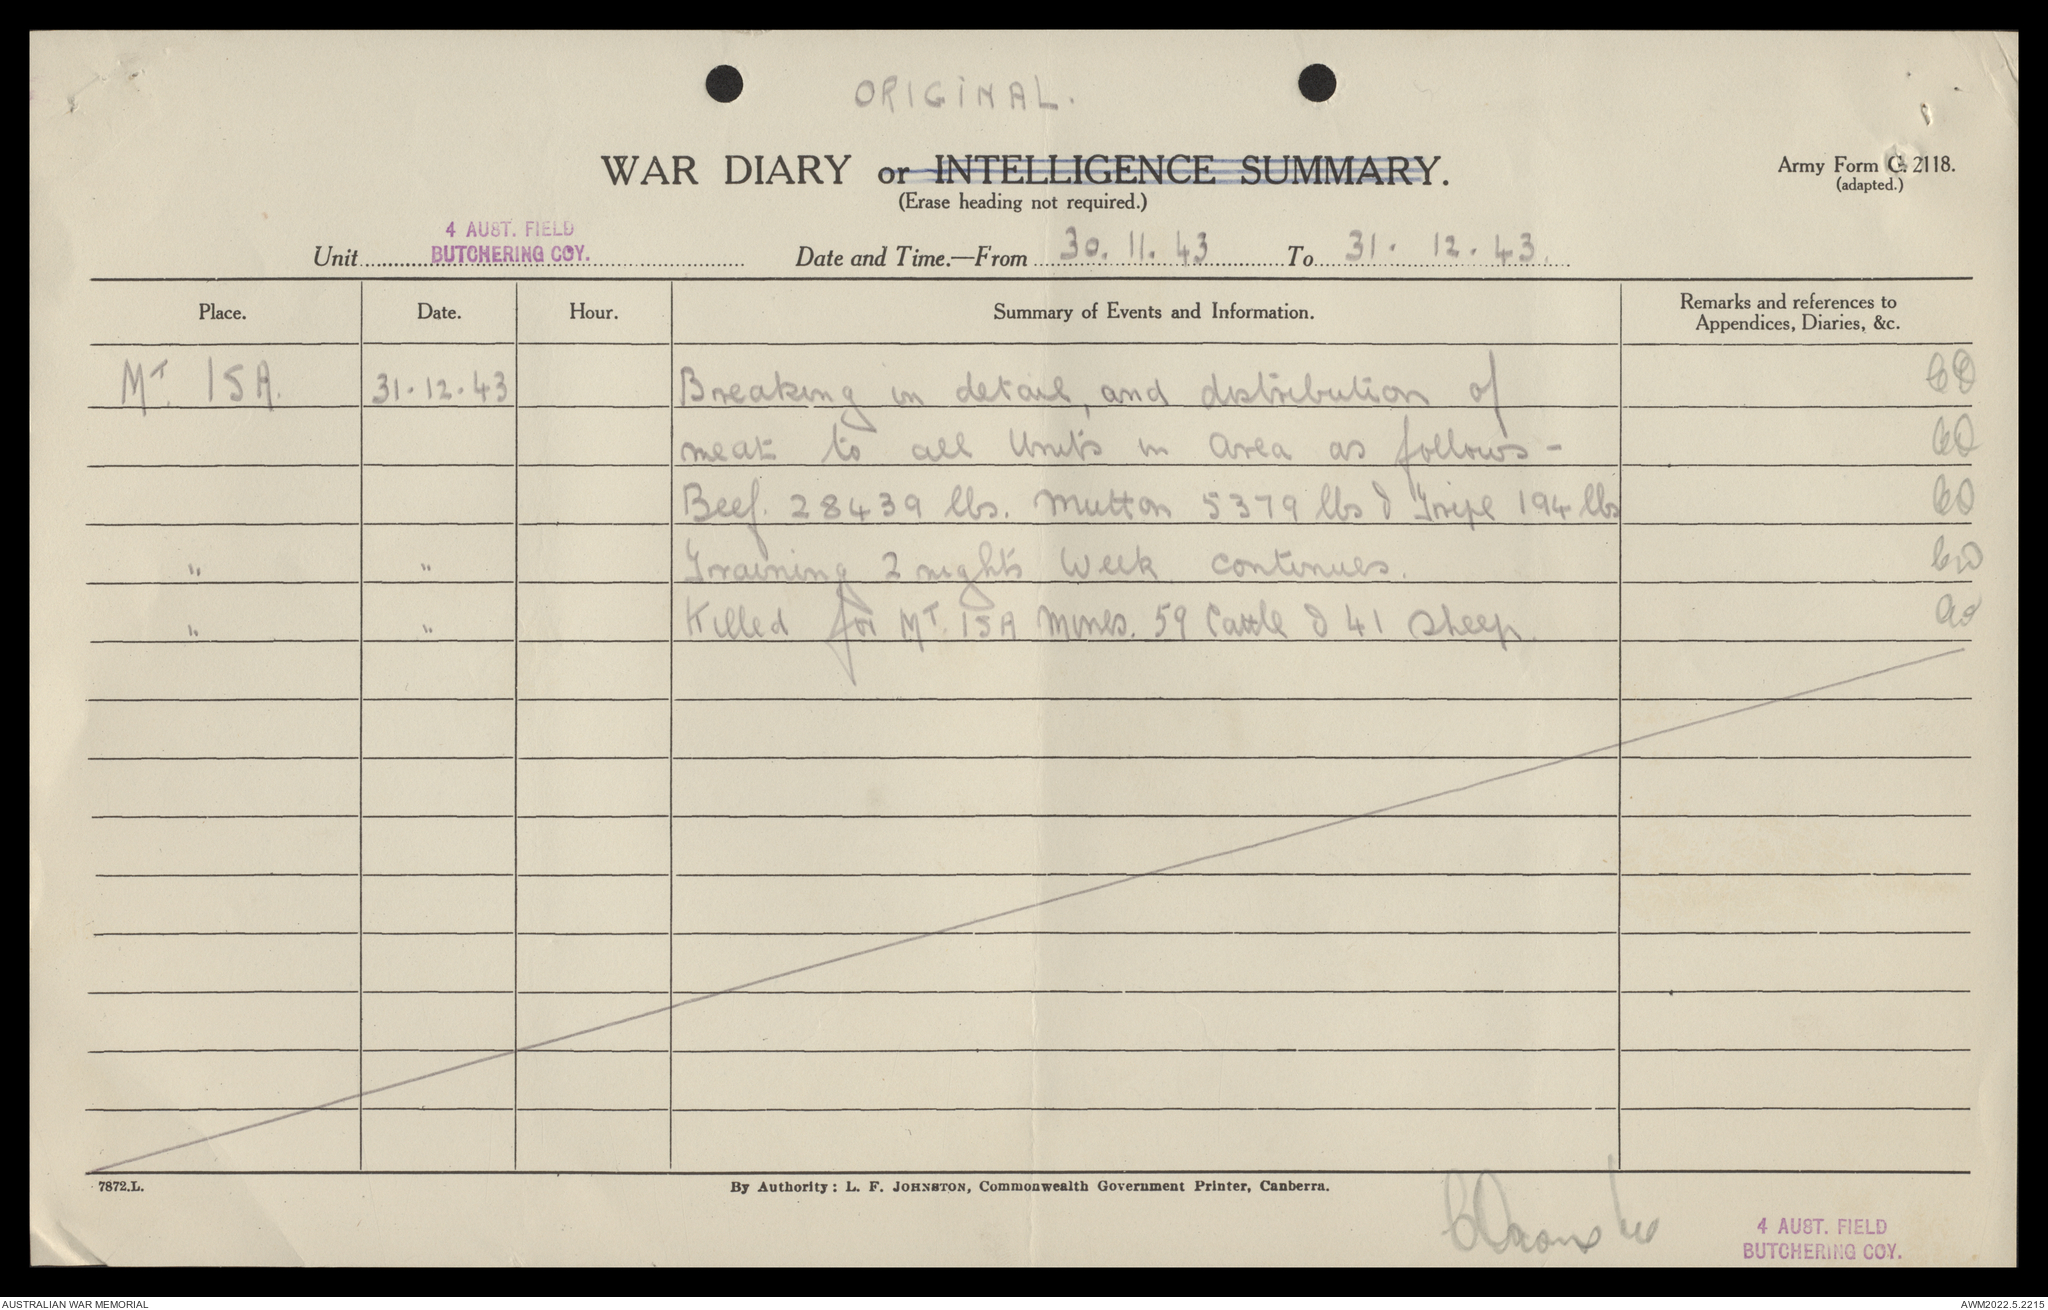 ORIGINAL.
WAR DIARY or INTELLIGENCE SUMMARY.
Army Form C. 2118.
(adapted.)
(Erase heading not required.)
4 AUST. FIELD
Unit BUTCHERING COY. Date and Time.—From 30. 11. 43 To 31. 12. 43.
Place. Date. Hour. Summary of Events and Information. Remarks and references to
Appendices, Diaries, &c.
MT. ISA. 31.12.43 Breaking in detail, and distribution of
meat to all Units in area as follows -
Beef. 28439 lbs. Mutton 5379 lbs & Tripe 194 lbs
" " Training 2 nights Week continues.
" " Killed for MT. ISA Mines. 59 Cattle & 41 Sheep.
7872.L. By Authority: L. F. JOHNSTON, Commonwealth Government Printer, Canberra.
4 AUST. FIELD
BUTCHERING COY.
AUSTRALIAN WAR MEMORIAL AWM2022.5.2215